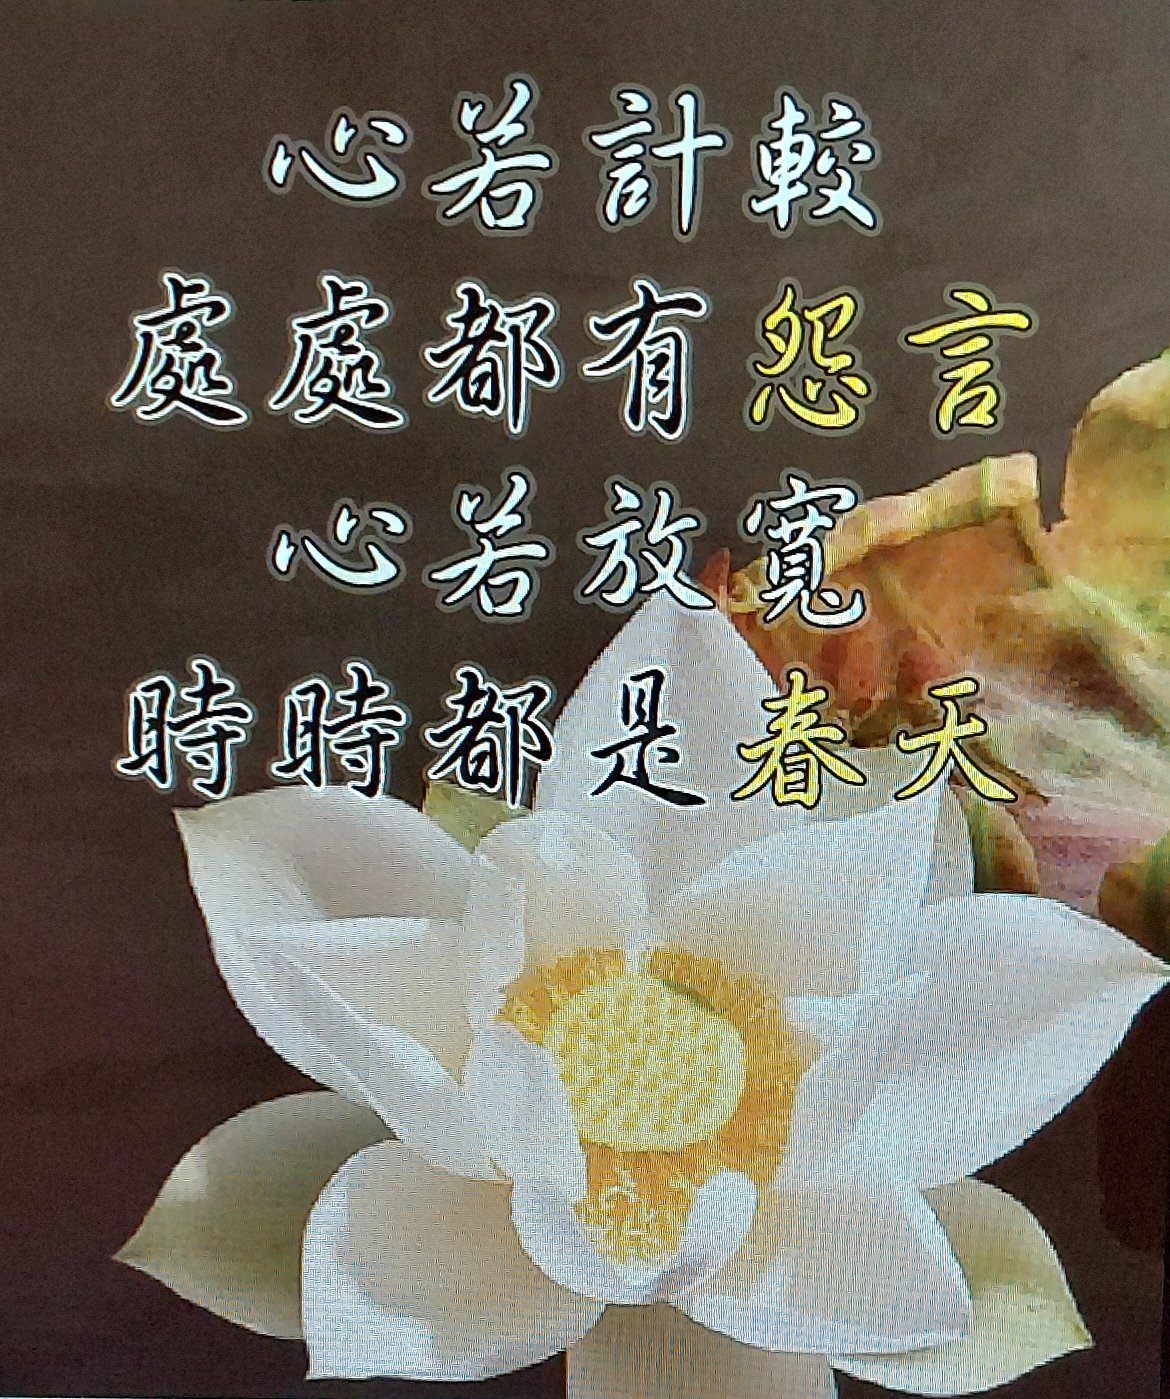 心若計較
處處都有怨言
心若放寬
時時都是春天